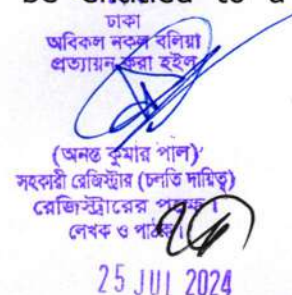 be entitled to a
ঢাকা
অবিকল নকল বলিয়া
প্রত্যায়ন করা হইল
(অনন্ত কুমার পাল)
সহকারী রেজিস্ট্রার (চলতি দায়িত্ব)
রেজিস্ট্রারের পক্ষে।
লেখক ও পাঠক।
25 JUL 2024